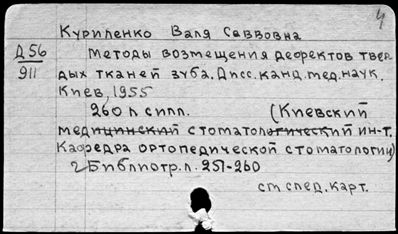 у
Куриленко Валя Саввовна
Д56
911
Методы возмещения дефектов твер
дых тканей зуба. Дисс. канд. мед. наук.
Киев, 1955
260 л с илл. (Киевский
медицинский стоматологический ин-т.
Кафедра ортопедической стоматологии)
Библиотр. л. 251-260
см спед. карт.